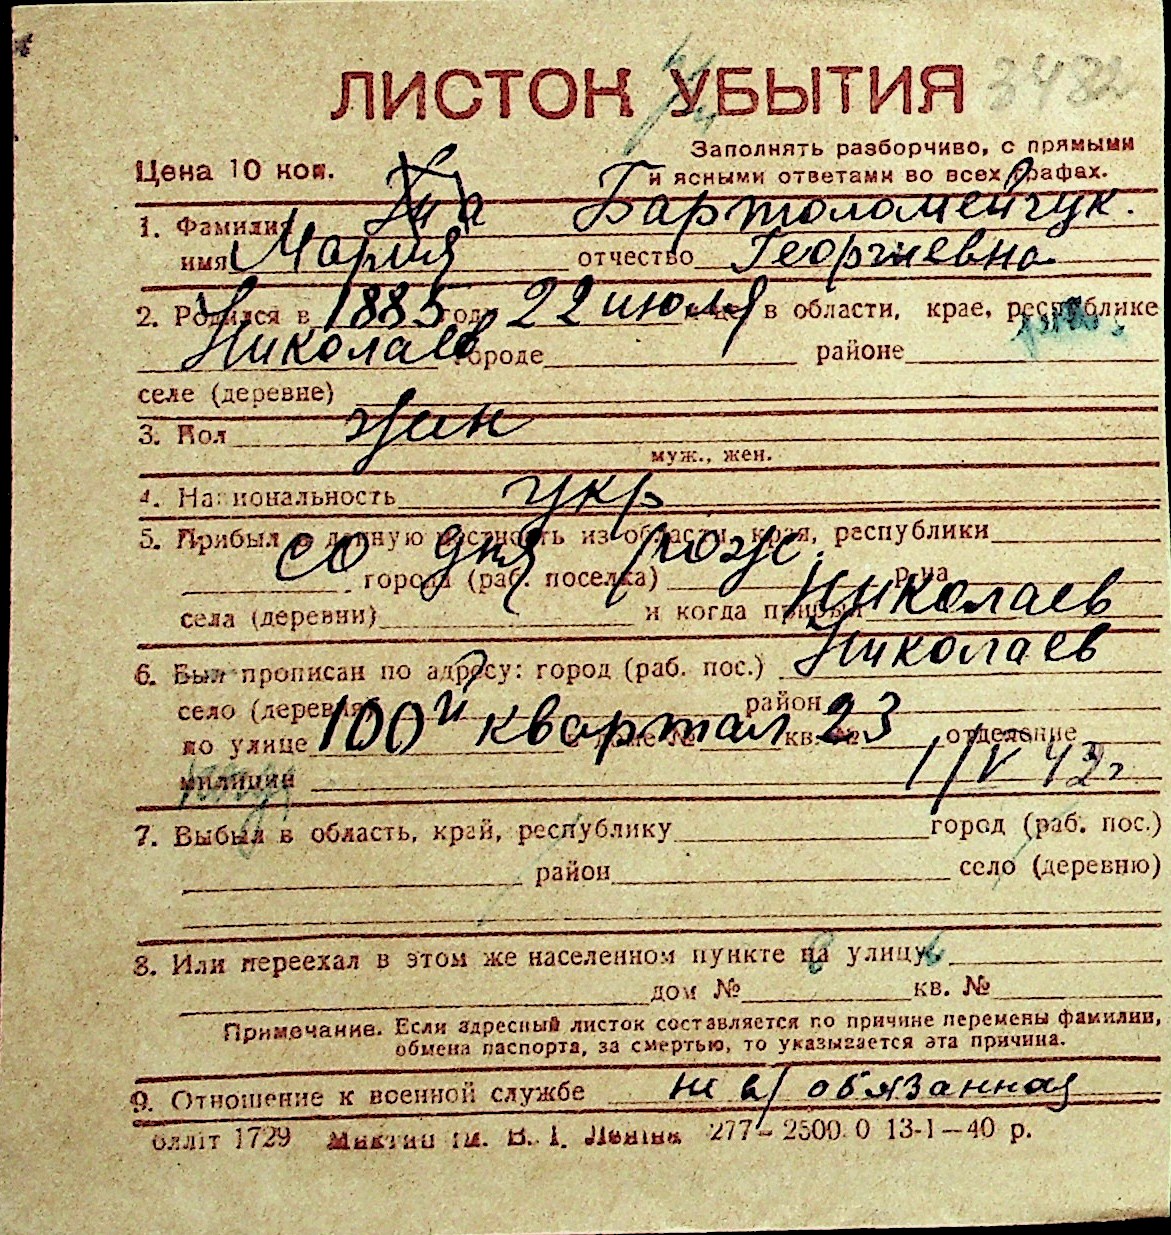 ЛИСТОК УБЫТИЯ 3482
Цена 10 коп.
Заполнять разборчиво, с прямыми
и ясными ответами во всех графах.
1. Фамилия Бартоломейчук.
имя Мария отчество Георгиевна
2. Родился в 1885 год 22 июля в области, крае, республике
Николаев городе районе
селе (деревне)
3. Пол жен
муж., жен.
4. Национальность укр
5. Прибыл в данную местность из области, края, республики
со дня рож.
города (раб. поселка) р-на
села (деревни) и когда прибыл Николаев
6. Был прописан по адресу: город (раб. пос.) Николаев
село (деревня) район
по улице 100й квартал 23 в доме № кв. № отделение
милиции 1/V 42г
7. Выбыл в область, край, республику город (раб. пос.)
район село (деревню)
8. Или переехал в этом же населенном пункте на улицу
дом № кв. №
Примечание. Если адресный листок составляется по причине перемены фамилии,
обмена паспорта, за смертью, то указывается эта причина.
9. Отношение к военной службе не в/обязанная
облліт 1729 ім. В. І. Леніна 277—2500.0 13-I—40 р.